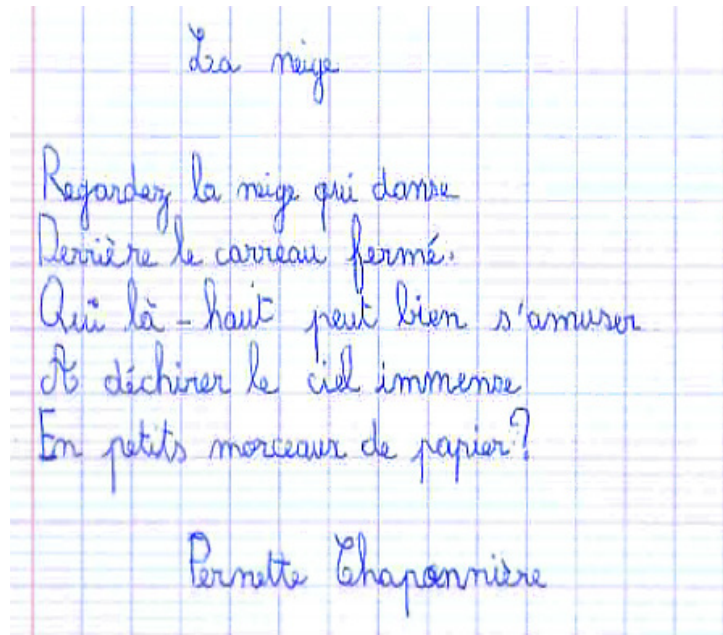 La neige
Regardez la neige qui danse
Derrière le carreau fermé.
Qui là-haut peut bien s'amuser
A déchirer le ciel immense
En petits morceaux de papier?
Pernette Chaponnière